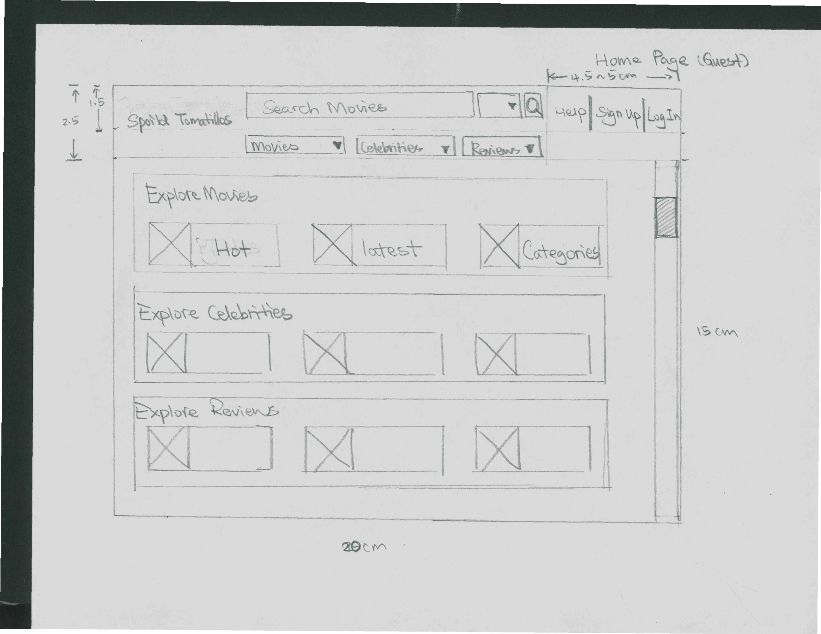 Home Page (Guest)
4.5~5cm
1.5
2.5
Spoiled Tomatillos
Search Movies
Help
Sign Up
Log In
Movies
Celebrities
Reviews
Explore Movies
Hot
latest
Categories
Explore Celebrities
15 cm
Explore Reviews
20 cm